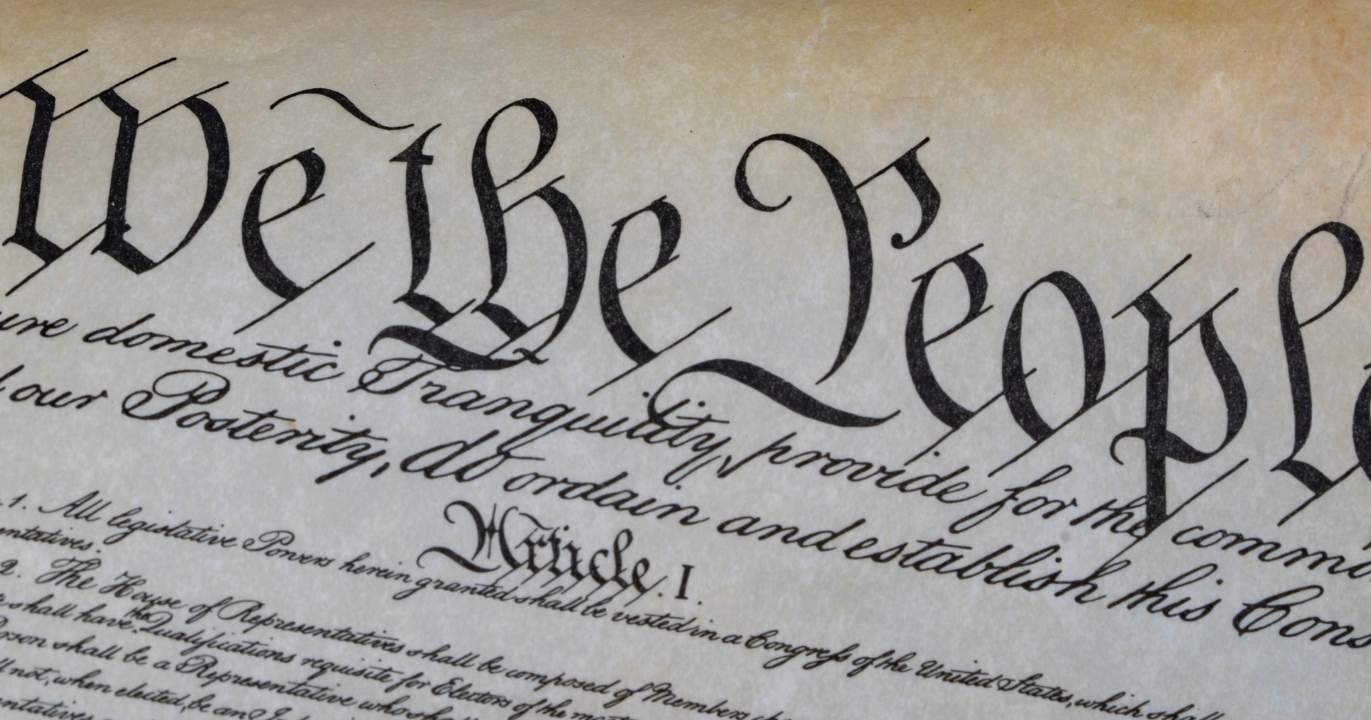 We the People
domestic Tranquility, provide for the
our Posterity, do ordain and establish this
Article. I.
1. All legislative Powers herein granted shall be vested in a Congress of the United States, which shall
2. The House of Representatives shall be composed of Members
shall have the Qualifications requisite for Electors of the most
shall be a Representative who shall
not, when elected, be an